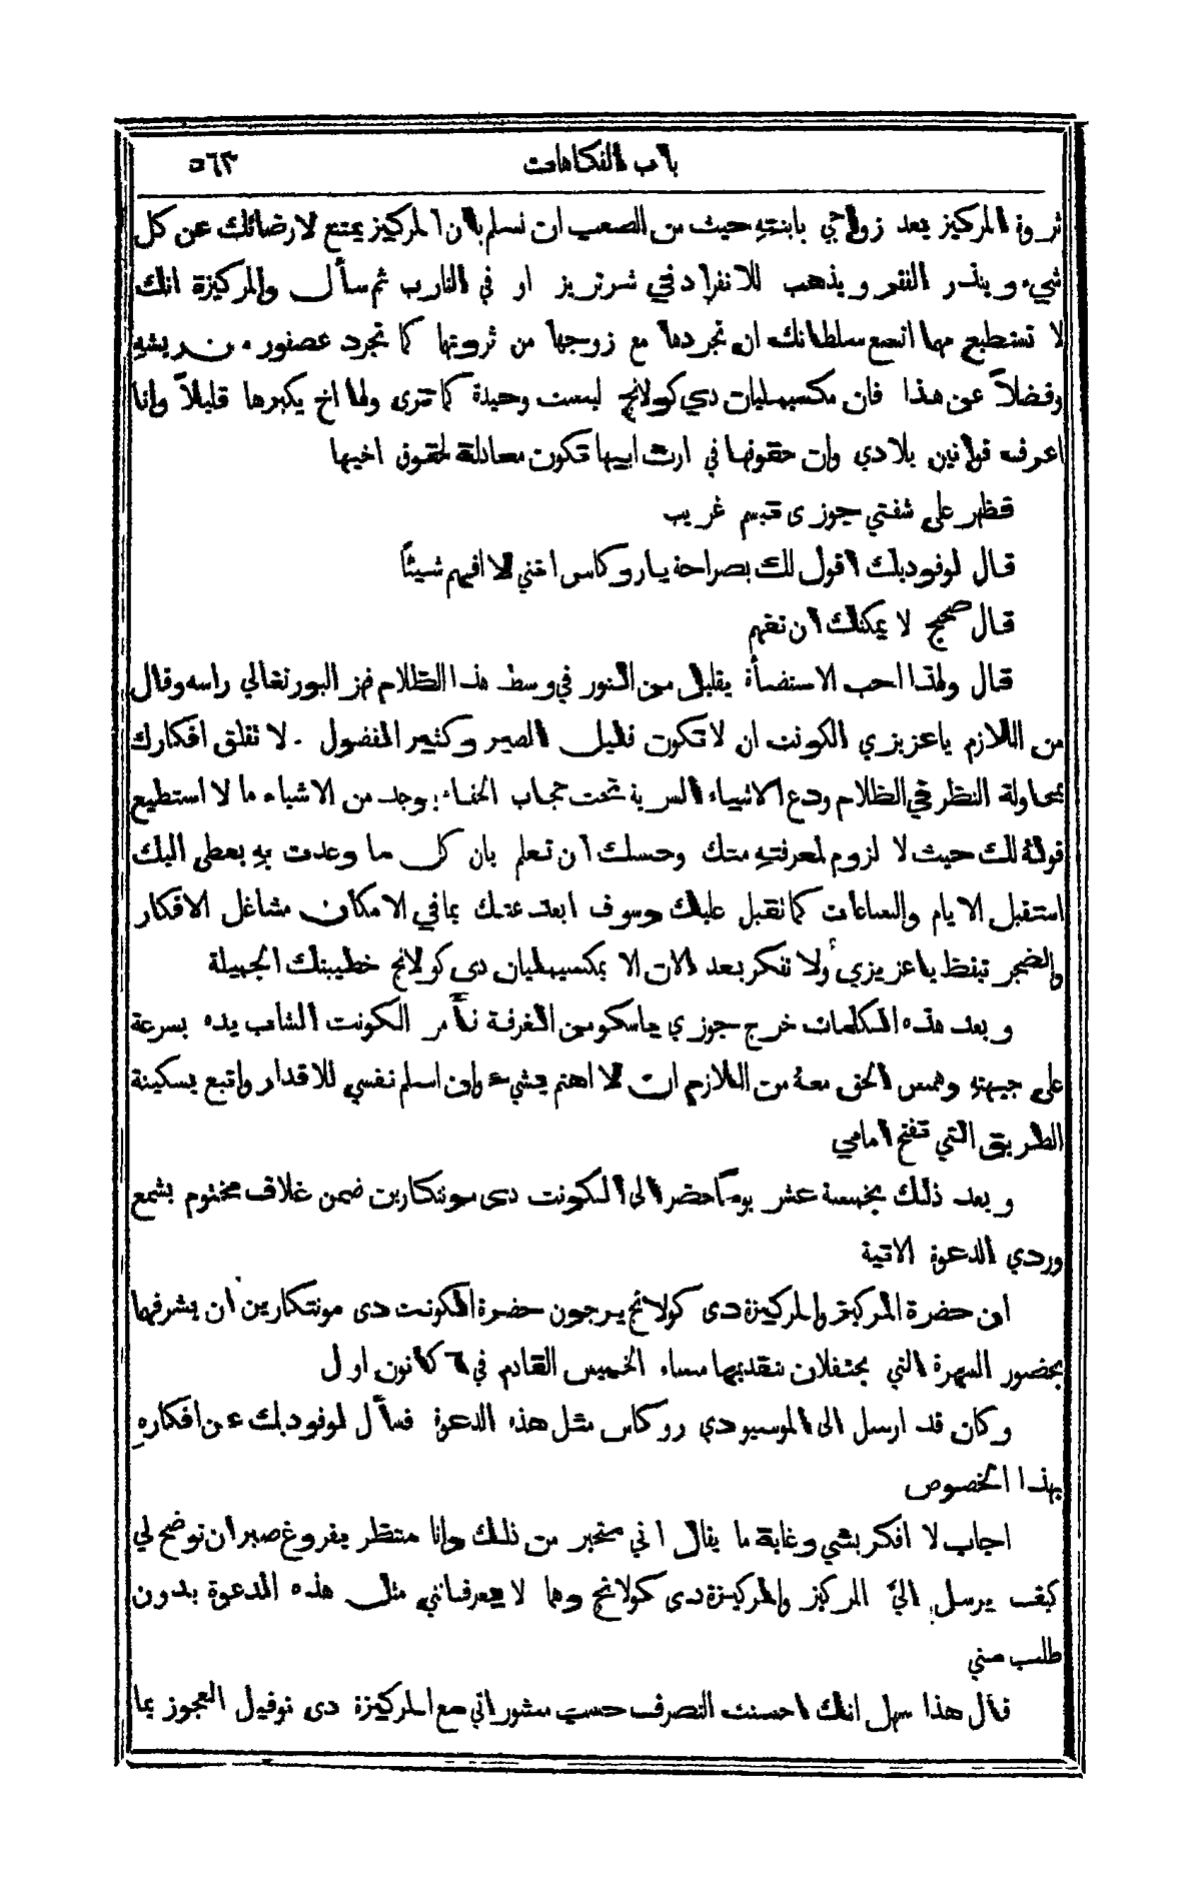 باب الفكاهات ٥٦٣
ثروة المركيز بعد زواجي بابنتهِ حيث من الصعب ان نسلم بان المركيز يمتع لارضائك عن كل
شيء وينذر الفقر ويذهب للانفراد في شرتريز او في التارب ثم سأل والمركيزة انك
لا تستطيع مهما اتسع سلطانك ان تجردها مع زوجها من ثروتها كما تجرد عصفور من ريشهِ
وفضلاً عن هذا فان مكسيمليان دي كولانج ليست وحيدة كما ترى ولها اخ يكبرها قليلاً وانا
اعرف قوانين بلادي وان حقوقها في ارث ابيها تكون معادلة لحقوق اخيها
فظهر على شفتي جوزى تبسم غريب
قال لوفودبك اقول لك بصراحة يا روكاس انني لا افهم شيئاً
قال صحيح لا يمكنك ان تفهم
قال ولهذا احب الاستضأة بقليل من النور في وسط هذا الظلام فهز البورتغالي راسه وقال
من اللازم ياعزيزي الكونت ان لا تكون قليل الصبر وكثير الفضول . لا تقلق افكارك
بمحاولة النظر في الظلام ودع الاشياء السرية تحت حجاب الخفاء يوجد من الاشياء ما لا استطيع
قولهُ لك حيث لا لزوم لمعرفتهِ منك وحسبك ان تعلم بان كل ما وعدت بهِ يعطى اليك
استقبل الايام والساعات كما تقبل عليك وسوف ابعد عنك بما في الامكان مشاغل الافكار
والضجر تيقظ ياعزيزي ولا تفكر بعد الان الا بمكسيمليان دى كولانج خطيبتك الجميلة
وبعد هذه الكلمات خرج جوزي باسكو من الغرفة فأمر الكونت الشاب يده بسرعة
على جبهتهِ وهمس الحق معهُ من اللازم ان لا اهتم بشيء وان اسلم نفسي للاقدار واتبع بسكينة
الطريق التي تفتح امامي
وبعد ذلك بخمسة عشر يوماً حضر الى الكونت دى مونتكارين ضمن غلاف مختوم بشمع
وردي الدعوة الاتية
ان حضرة المركيز والمركيزة دى كولانج يرجون حضرة الكونت دى مونتكارين ان يشرفها
بحضور السهرة التي يحتفلان بتقديمها مساء الخميس القادم في ٦ كانون اول
وكان قد ارسل الى الموسيو دي روكاس مثل هذه الدعوة فسأل لوفودبك عن افكارهِ
بهذا الخصوص
اجاب لا افكر بشي وغاية ما يقال اني متحير من ذلك وانا منتظر بفروغ صبر ان توضح لي
كيف يرسل اليَّ المركيز والمركيزة دى كولانج وهما لا يعرفانني مثل هذه الدعوة بدون
طلب مني
قال هذا سهل انك احسنت التصرف حسب مشوراتي مع المركيزة دى نوفيل العجوز بما